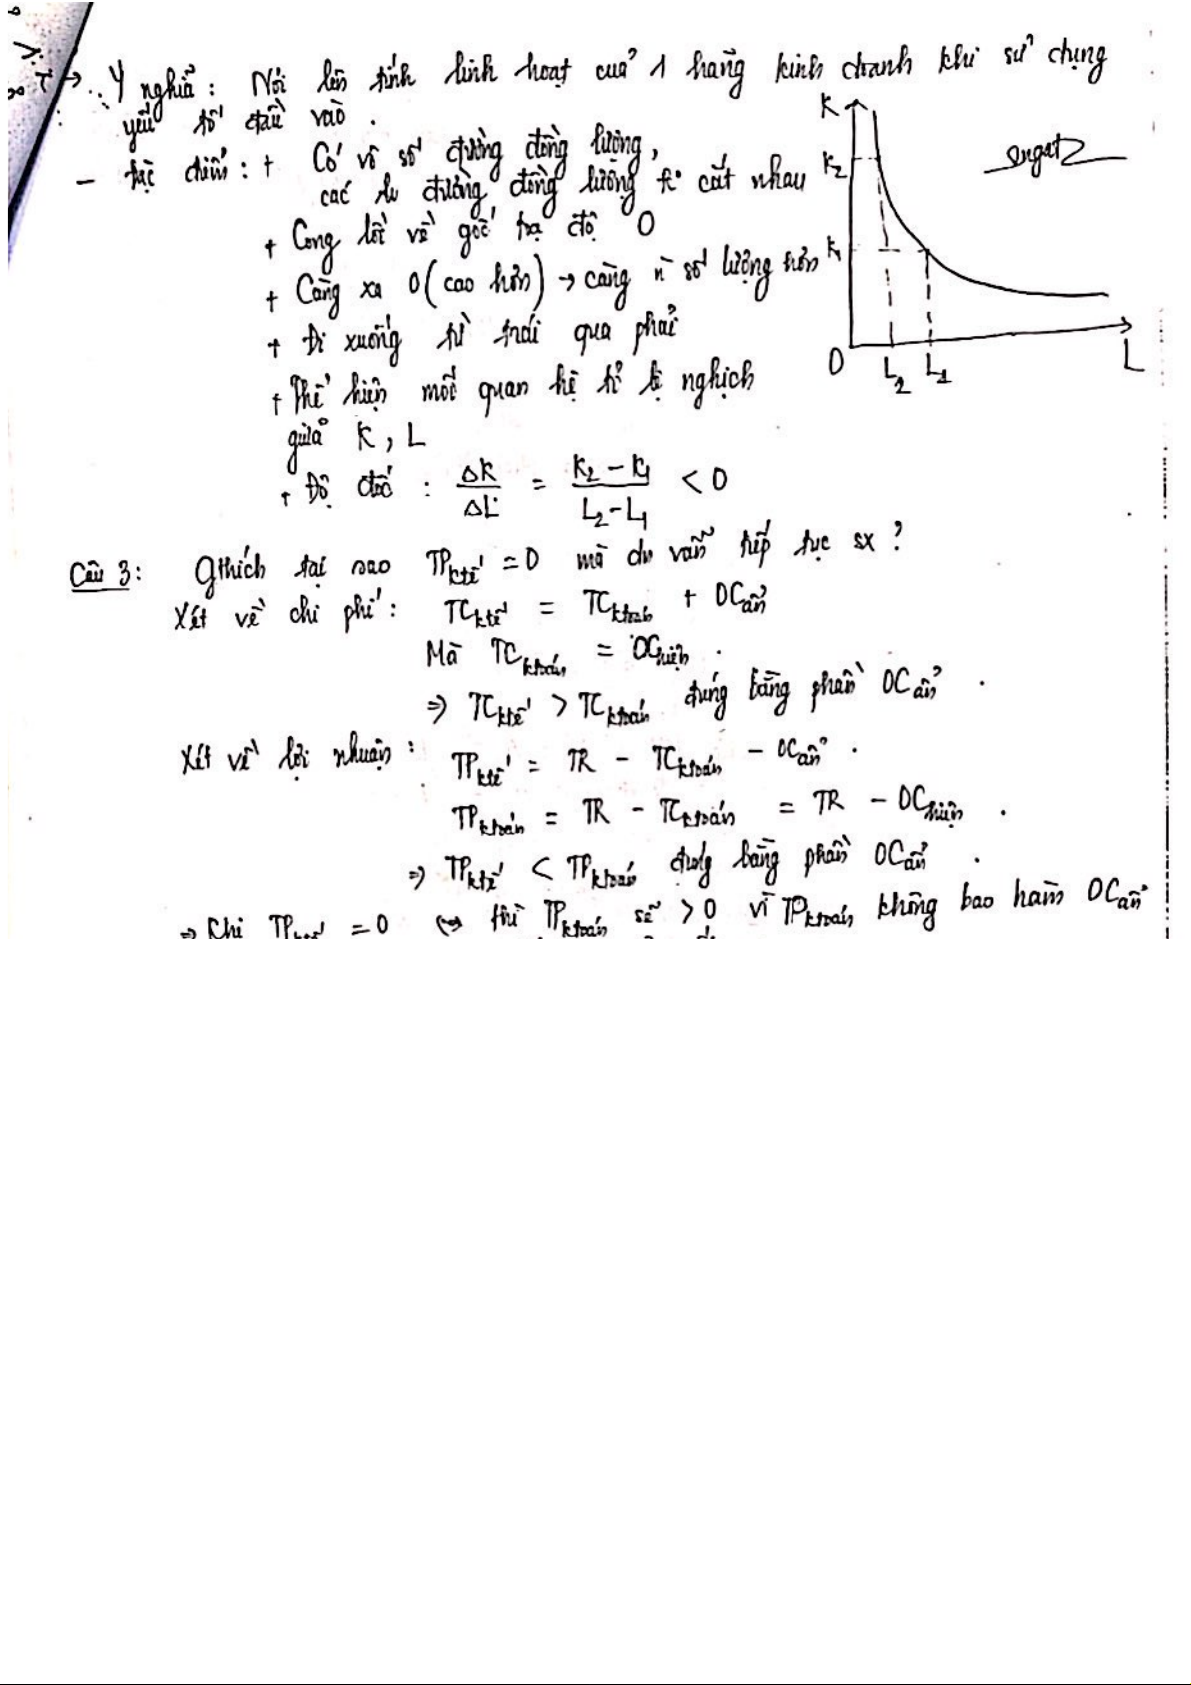 → Ý nghĩa : Nói lên tính linh hoạt của 1 hãng kinh doanh khi sử dụng
yếu tố đầu vào .
- Đặc điểm : + Có vô số đường đồng lượng,
các đường đồng lượng k° cắt nhau
+ Cong lồi về gốc tọa độ O
+ Càng xa O (cao hơn) → càng n` số lượng hơn
+ Đi xuống từ trái qua phải
+ Thể hiện mối quan hệ tỉ lệ nghịch
giữa K, L
+ Độ dốc : ΔK/ΔL = (K2 - K1)/(L2 - L1) < 0
K
K2
K1
O
L2
L1
L
Câu 3: Gthích tại sao TPktế = 0 mà dn vẫn tiếp tục sx ?
Xét về chi phí : TCktế = TCktoán + OCẩn
Mà TCktoán = OChiện .
⇒ TCktế > TCktoán đúng bằng phần OCẩn .
Xét về lợi nhuận : TPktế = TR - TCktoán - OCẩn .
TPktoán = TR - TCktoán = TR - OChiện .
⇒ TPktế < TPktoán đúng bằng phần OCẩn .
⇒ Khi TPktế = 0 thì TPktoán sẽ > 0 vì TPktoán không bao hàm OCẩn